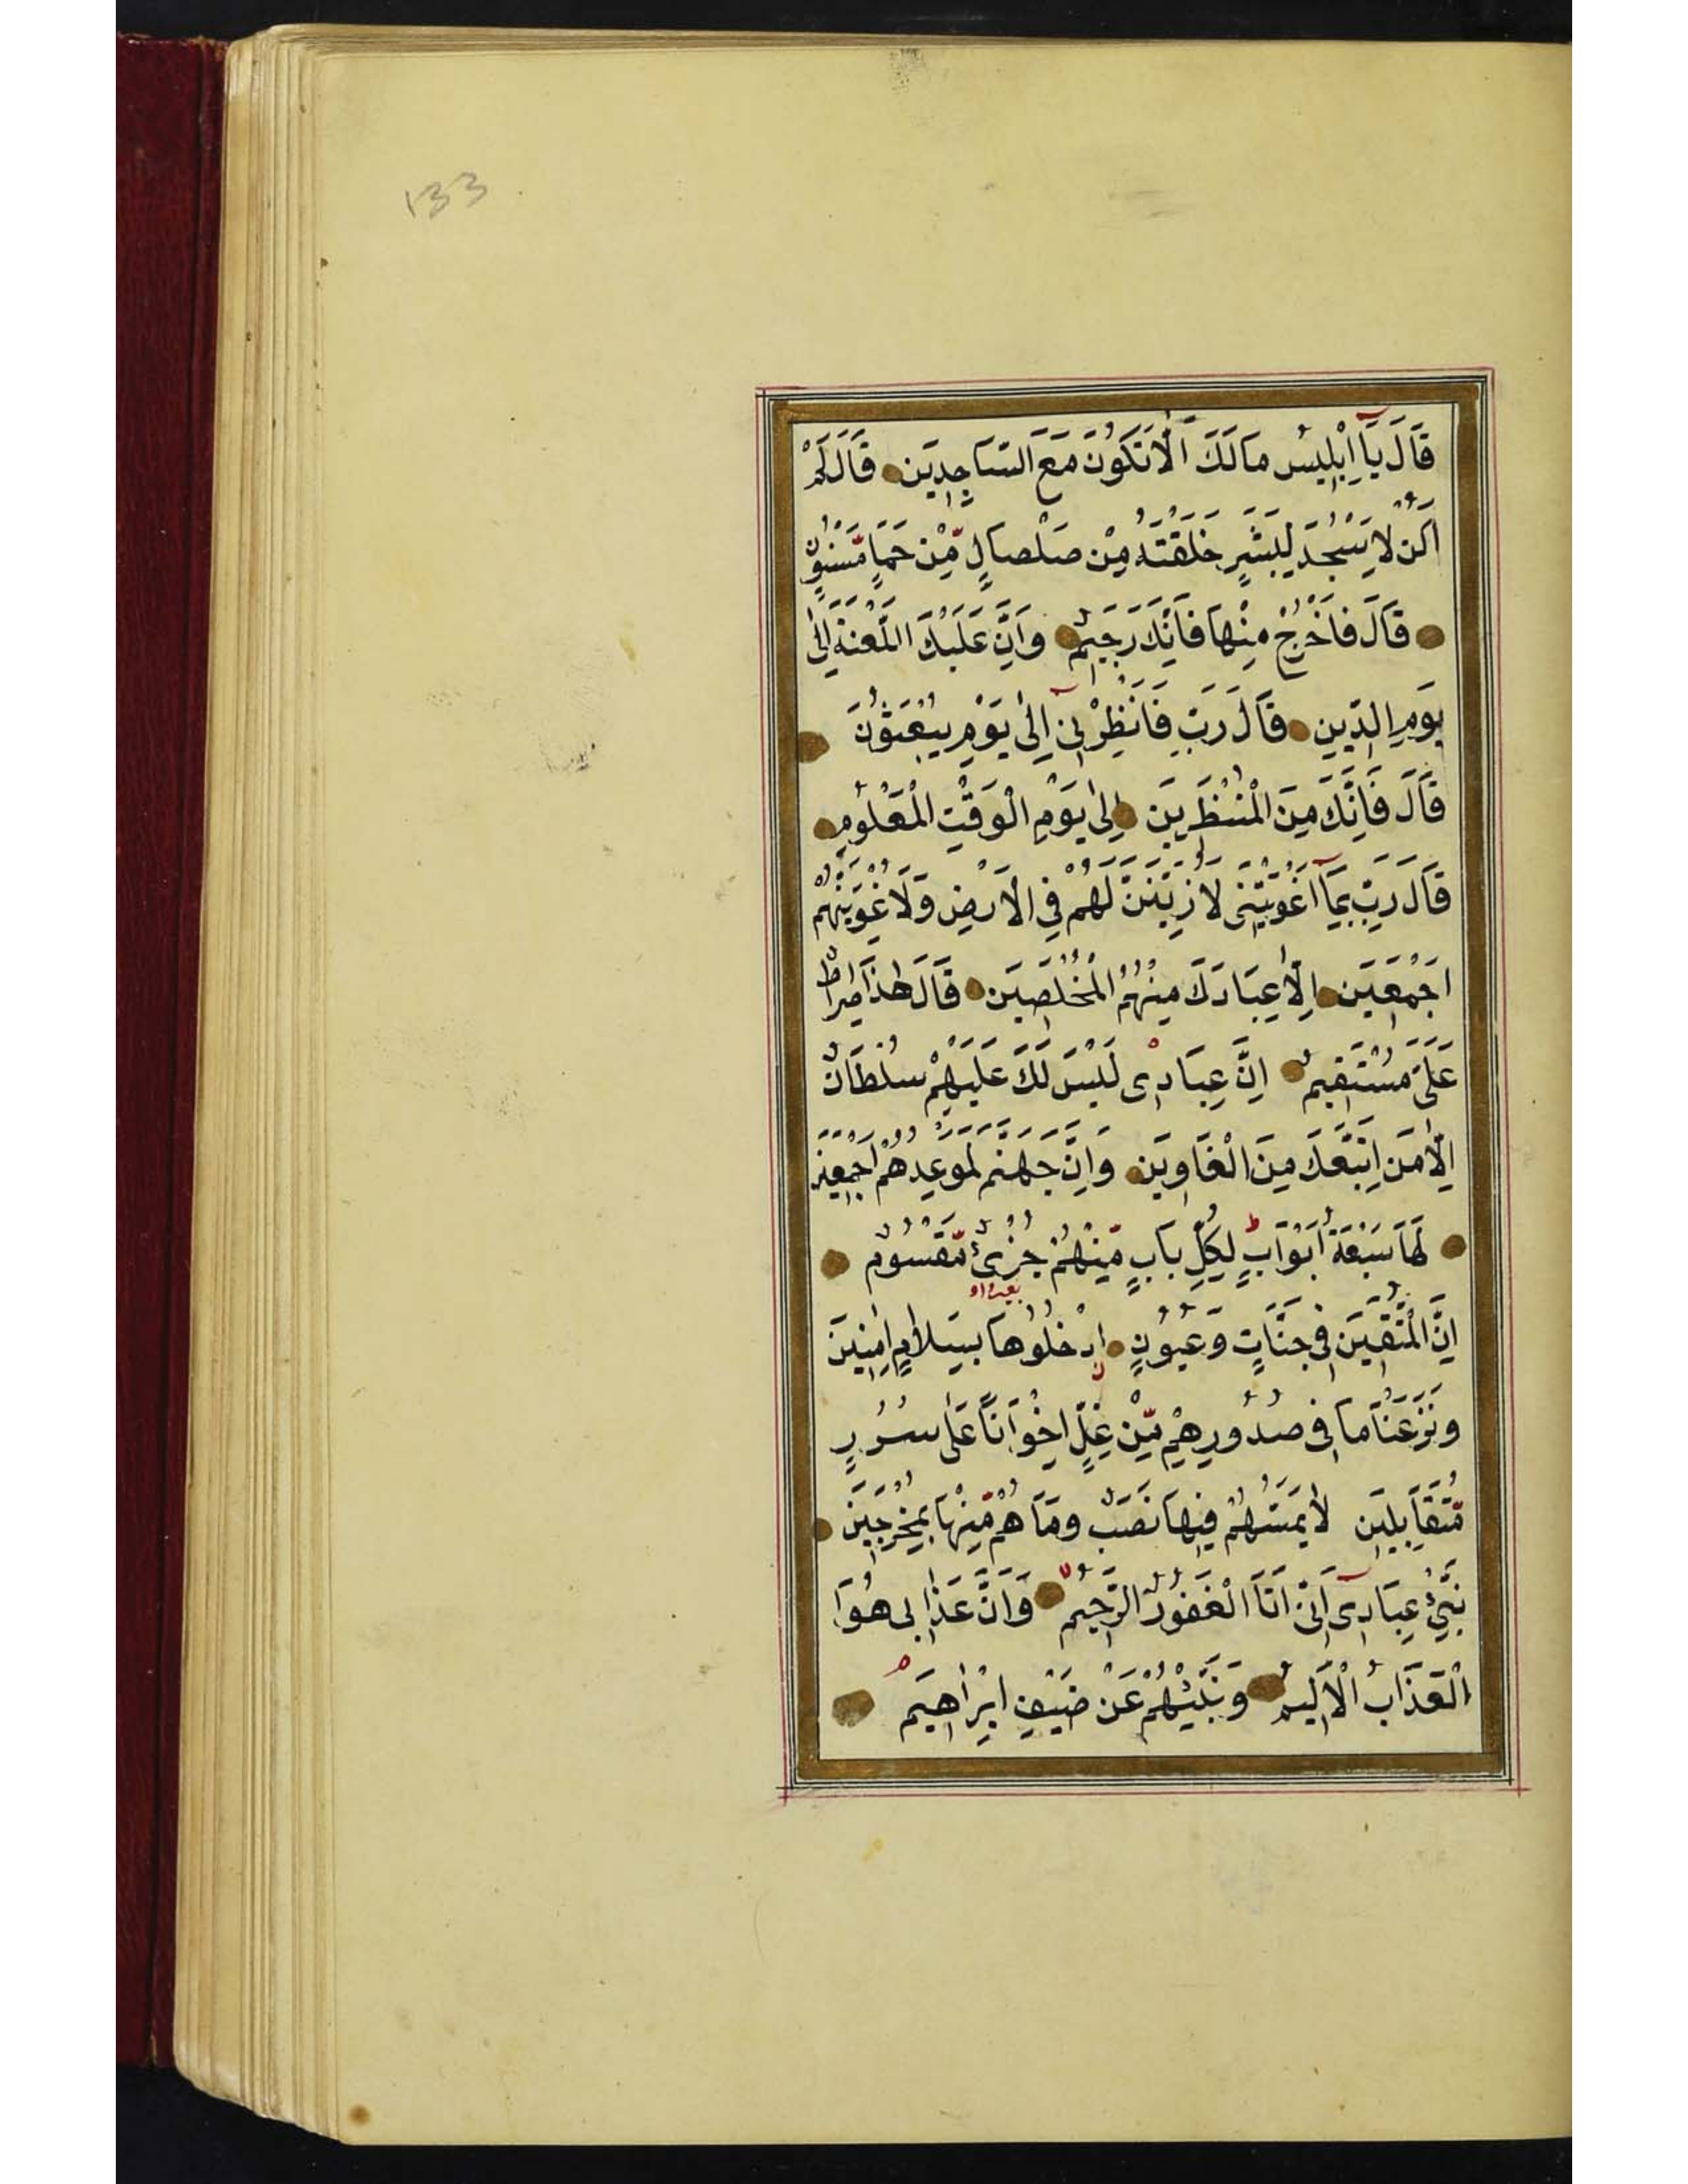 133
قَالَ يَٓا اِبْلِيسُ مَا لَكَ اَلَّا تَكُونَ مَعَ السَّاجِدِينَ قَالَ لَمْ
اَكُنْ لِاَسْجُدَ لِبَشَرٍ خَلَقْتَهُ مِنْ صَلْصَالٍ مِّنْ حَمَاٍ مَّسْنُونٍ
قَالَ فَاخْرُجْ مِنْهَا فَاِنَّكَ رَجِيمٌ وَاِنَّ عَلَيْكَ اللَّعْنَةَ اِلٰى
يَوْمِ الدِّينِ قَالَ رَبِّ فَاَنْظِرْنِىٓ اِلٰى يَوْمِ يُبْعَثُونَ
قَالَ فَاِنَّكَ مِنَ الْمُنْظَرِينَ اِلٰى يَوْمِ الْوَقْتِ الْمَعْلُومِ
قَالَ رَبِّ بِمَٓا اَغْوَيْتَنِى لَاُزَيِّنَنَّ لَهُمْ فِى الْاَرْضِ وَلَاُغْوِيَنَّهُمْ
اَجْمَعِينَ اِلَّا عِبَادَكَ مِنْهُمُ الْمُخْلَصِينَ قَالَ هٰذَا صِرَاطٌ
عَلَىَّ مُسْتَقِيمٌ اِنَّ عِبَادِى لَيْسَ لَكَ عَلَيْهِمْ سُلْطَانٌ
اِلَّا مَنِ اتَّبَعَكَ مِنَ الْغَاوِينَ وَاِنَّ جَهَنَّمَ لَمَوْعِدُهُمْ اَجْمَعِينَ
لَهَا سَبْعَةُ اَبْوَابٍ ط لِكُلِّ بَابٍ مِّنْهُمْ جُزْءٌ مَّقْسُومٌ
اِنَّ الْمُتَّقِينَ فِى جَنَّاتٍ وَعُيُونٍ اُدْخُلُوهَا بِسَلَامٍ اٰمِنِينَ
وَنَزَعْنَا مَا فِى صُدُورِهِمْ مِّنْ غِلٍّ اِخْوَانًا عَلٰى سُرُرٍ
مُّتَقَابِلِينَ لَا يَمَسُّهُمْ فِيهَا نَصَبٌ وَمَا هُمْ مِّنْهَا بِمُخْرَجِينَ
نَبِّئْ عِبَادِىٓ اَنِّى اَنَا الْغَفُورُ الرَّحِيمُ وَاَنَّ عَذَابِى هُوَ
الْعَذَابُ الْاَلِيمُ وَنَبِّئْهُمْ عَنْ ضَيْفِ اِبْرَاهِيمَ